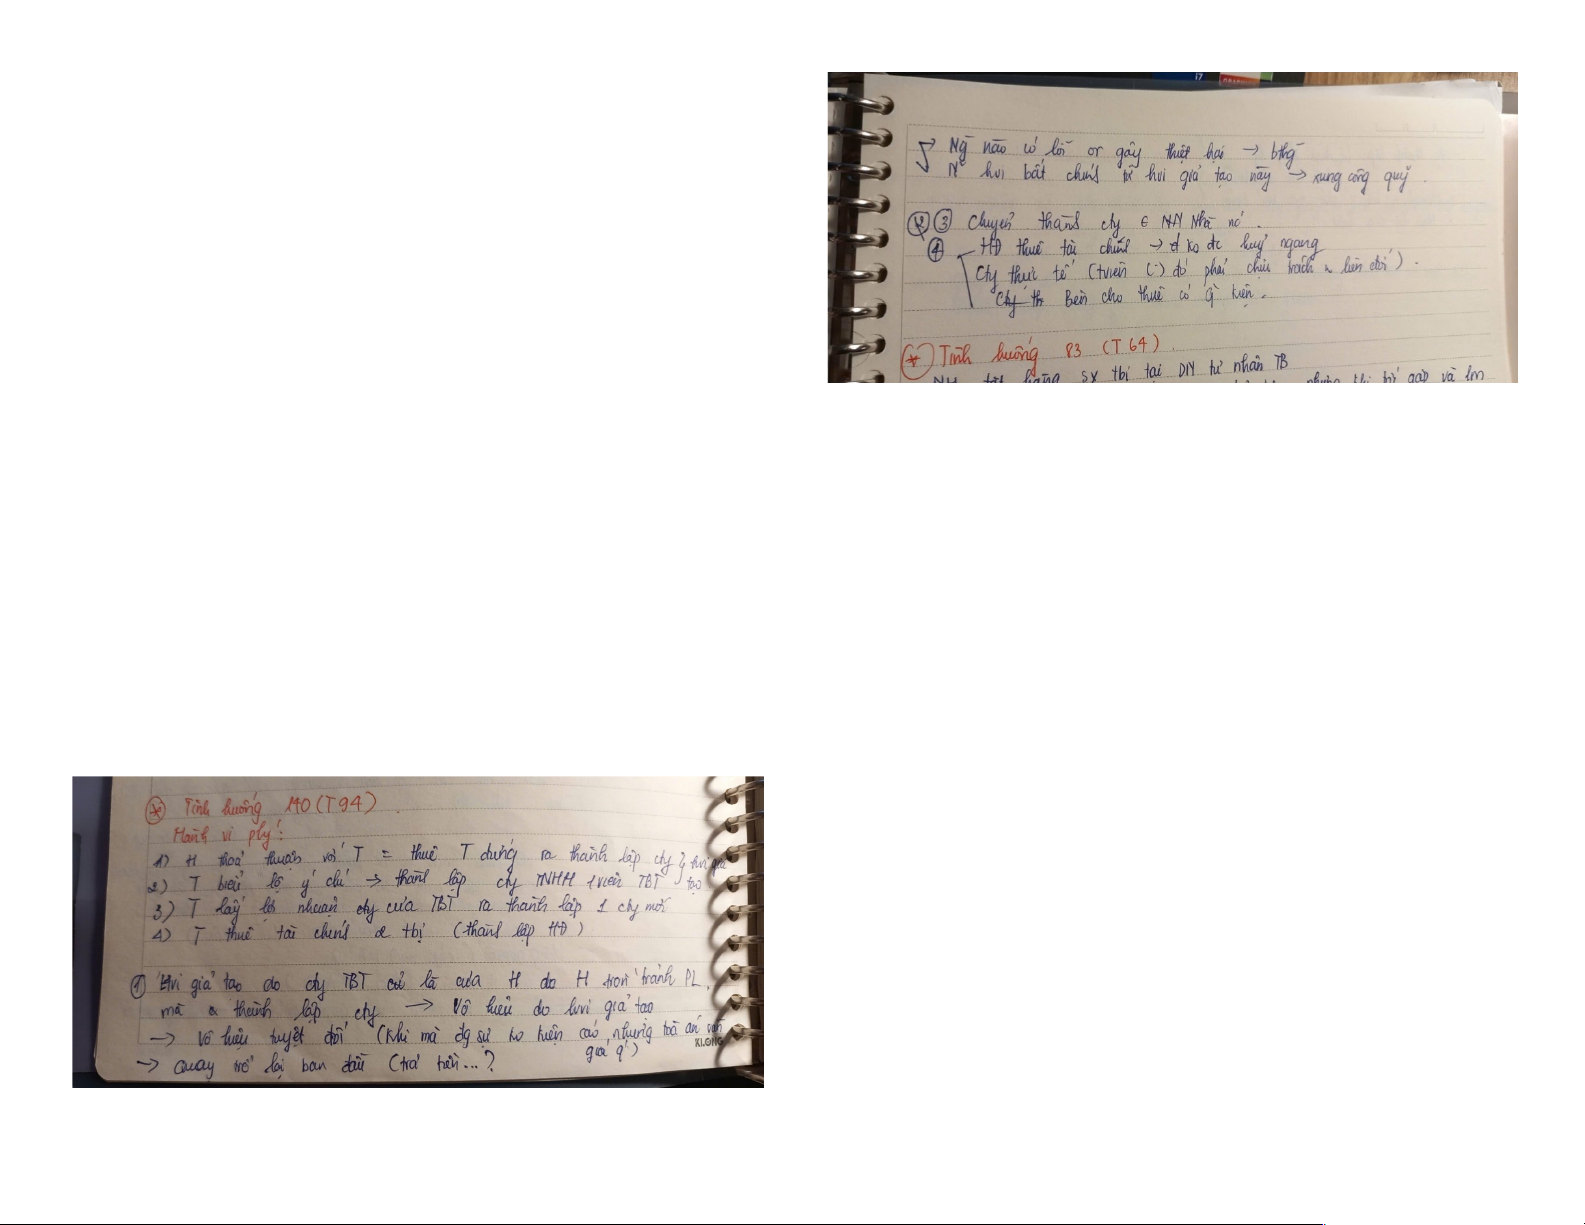 Tình huống 140 (T94)
Hành vi plý:
1) H thoả thuận với T = thuê T đứng ra thành lập cty } hvi giả
2) T biểu lộ ý chí → thành lập cty TNHH 1 viên TBT tạo
3) T lấy lợi nhuận cty của TBT ra thành lập 1 cty mới
4) T thuê tài chính tbị (thành lập HĐ)
① Hvi giả tạo do cty TBT là của H do H trốn tránh PL,
mà thành lập cty → Vô hiệu do hvi giả tạo
→ Vô hiệu tuyệt đối (khi mà đg sự ko kiện cáo, nhưng toà án vẫn
giải q')
→ Quay trở lại ban đầu (trả tiền...?
KLONG
Ng nào có lỗi or gây thiệt hại → bthg
hvi bất chính từ hvi giả tạo này → xung công quỹ.
③ Chuyển thành cty ∈ NN Nhà nc.
④ HĐ thuê tài chính → ko đc huỷ ngang
Cty thực tế (tviên (-) đó phải chịu trách n liên đới).
Cty th Bên cho thuê có q kiện.
* Tình huống 83 (T64)
sx tbị tại DN tư nhân TB